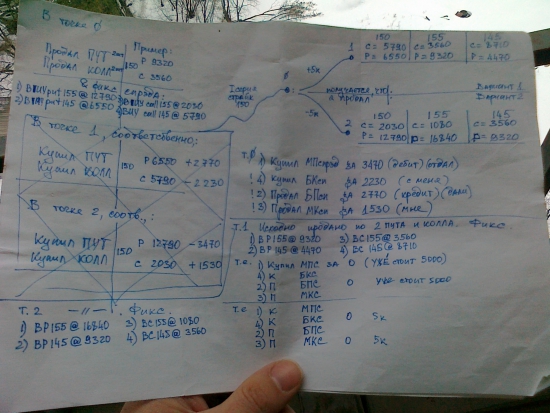 В точке 0
Продал ПУТ
Продал КОЛЛ
150
Пример:
P 9320
C 3560
1) BUY put 155 @ 12790
2) BUY put 145 @ 6550
BUY call 155 @ 2030
BUY call 145 @ 5790
В точке 1, соответственно;
Купил ПУТ
Купил КОЛЛ
150
P 6550 +2770
C 5790 -2230
В точке 2, соотв.,:
Купил ПУТ
Купил КОЛЛ
150
P 12790 -3470
C 2030 +1530
Т. 2 — // — Фикс.
1) BP 155 @ 16840
2) BP 145 @ 9320
3) BC 155 @ 1080
4) BC 145 @ 3560
150
0
+5к
-5к
1
150 155 145
C = 5790 C = 3560 C = 8710
P = 6550 P = 9320 P = 4470
получается, что
я продал
Вариант 1
Вариант 2
2
150 155 145
C = 2030 C = 1080 C = 3560
P = 12790 P = 16840 P = 9320
1) Купил за 3470 (дебит) (отдал)
4) Купил БКсп за 2230 (с меня)
2) Продал БПсп за 2770 (кредит) (дали)
3) Продал МКсп за 1530 (мне)
Т. 1 Исходно продано по 2 пута и колла. Фикс.
1) BP 155 @ 9320
2) BP 145 @ 4470
3) BC 155 @ 3560
4) BC 145 @ 8710
Т.о. 1) Купил МПС за 0 (уже стоит 5000)
4) К БКС
2) П БПС 0 уже стоит 5000
3) П МКС
Т.о 1) К МПС
4) К БКС 0 5к
2) П БПС
3) П МКС 0 5к